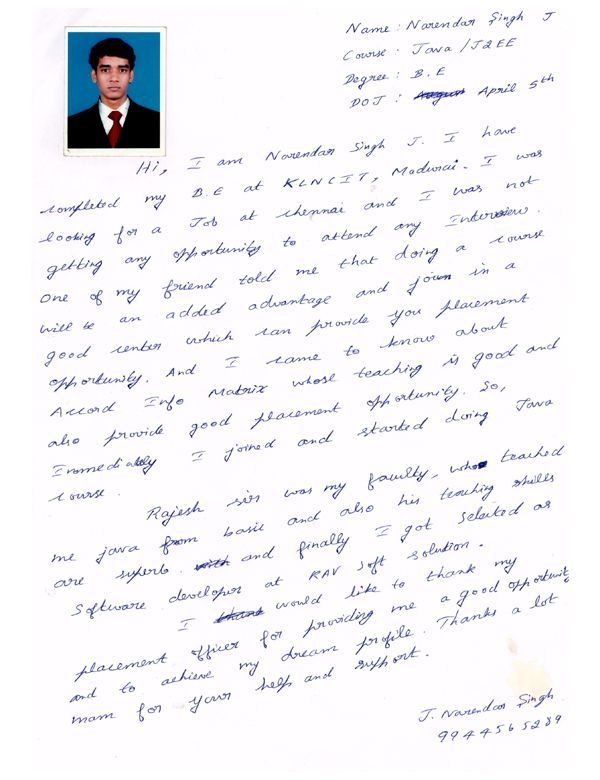 Name : Narendar Singh J
Course : Java / J2EE
Degree : B.E
DOJ : August April 5th
Hi, I am Narendar Singh J. I have
completed my B.E at KLNCIT, Madurai. I was
looking for a Job at chennai and I was not
getting any opportunity to attend any Interview.
One of my friend told me that doing a course
will be an added advantage and join in a
good center which can provide you placement
opportunity. And I came to know about
Accord Info Matrix whose teaching is good and
also provide good placement opportunity. So,
Immediately I joined and started doing Java
course.
Rajesh sir was my faculty, who teached
me java from basic and also his teaching skills
are superb. with and finally I got selected as
Software developer at RAV Soft solution.
I thank would like to thank my
placement officer for providing me a good opportunity
and to achieve my dream profile. Thanks a lot
mam for your help and support.
J. Narendar Singh
9944565289